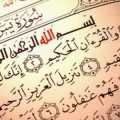 سُورَةُ يسٓ
بِسْمِ اللَّهِ الرَّحْمَٰنِ
وَالْقُرْءَانِ الْحَكِيمِ ۝ إِنَّكَ
۝ تَنزِيلَ الْعَزِيزِ الرَّحِيمِ
فَهُمْ غَٰفِلُونَ ۝